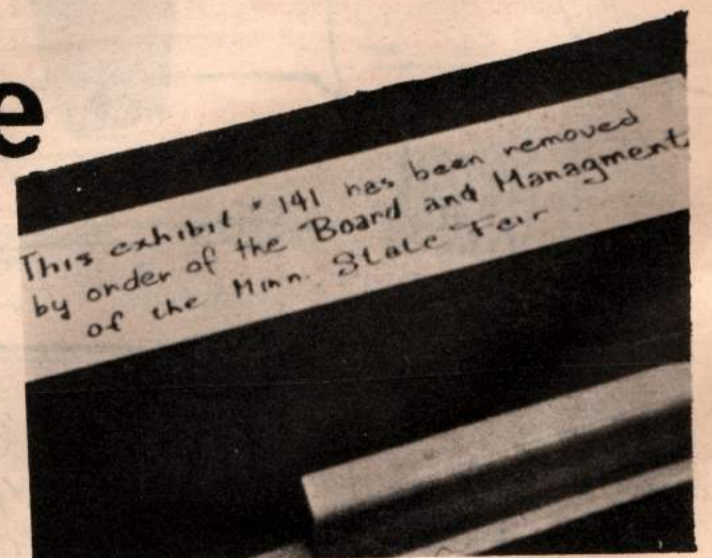 e
This exhibit # 141 has been removed
by order of the Board and Managment
of the Minn. State Fair